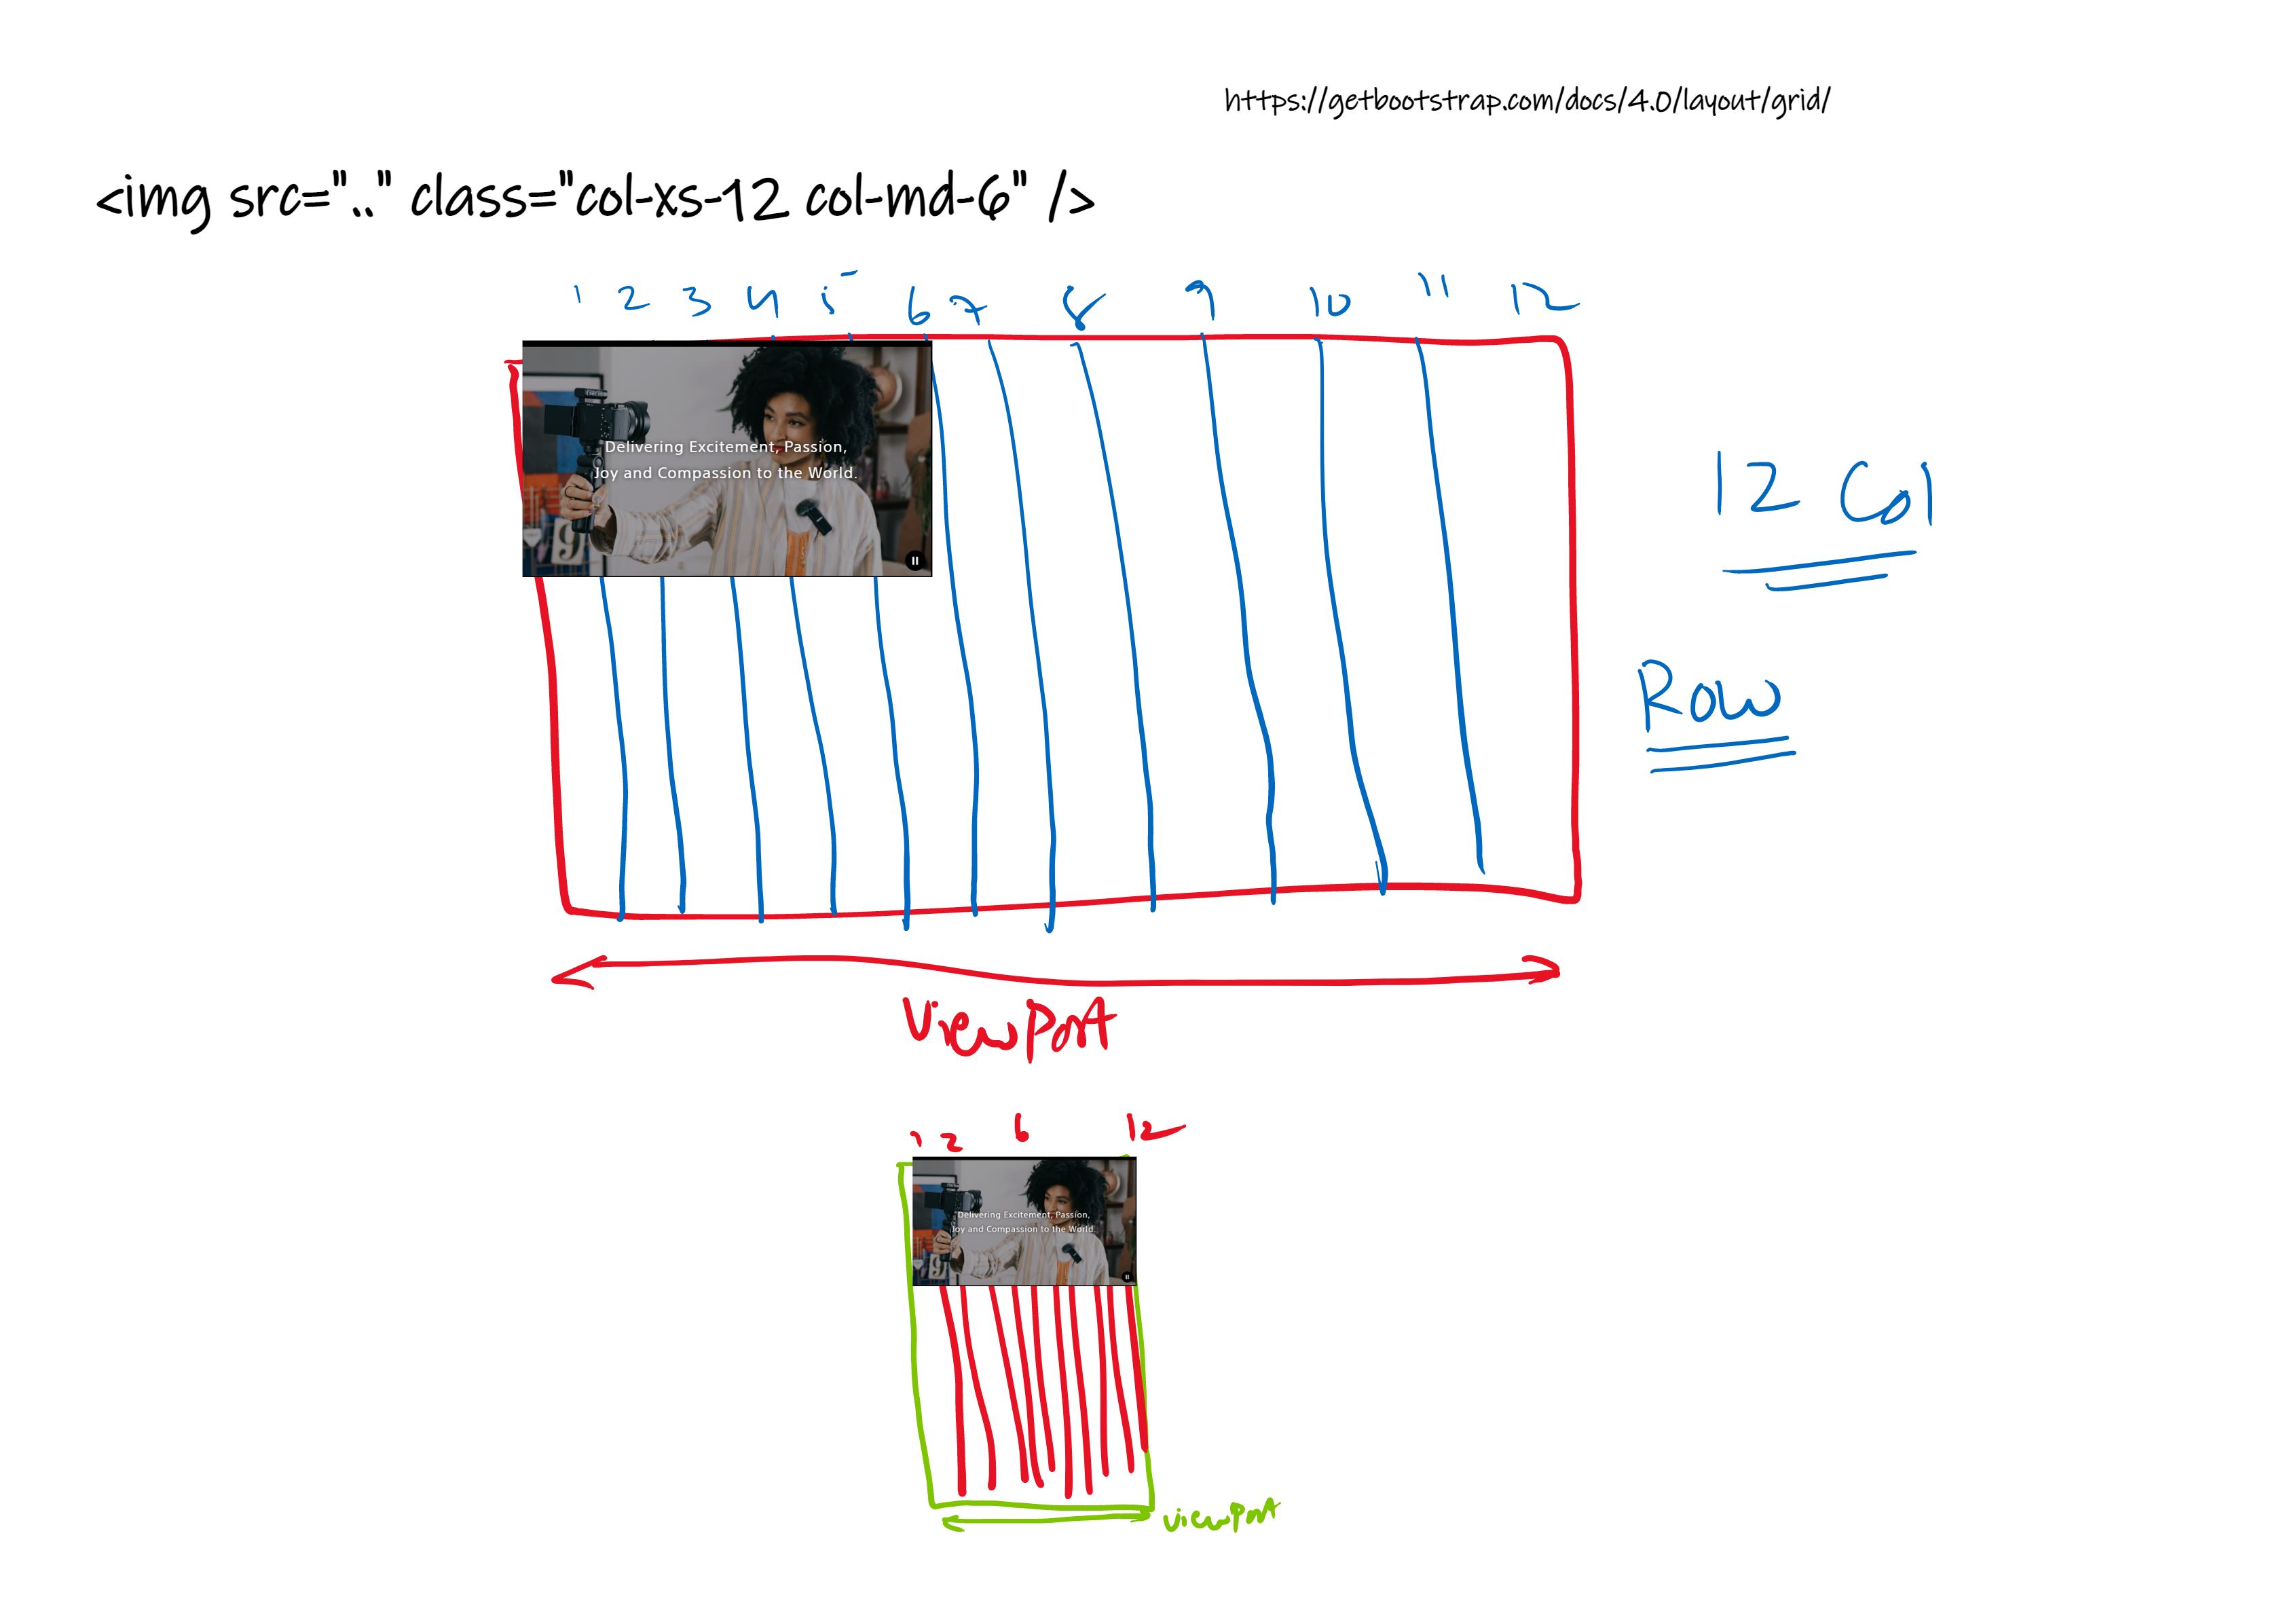 https://getbootstrap.com/docs/4.0/layout/grid/
<img src=".." class="col-xs-12 col-md-6" />
1 2 3 4 5 6 7 8 9 10 11 12
Delivering Excitement, Passion,
Joy and Compassion to the World.
9
12 Col
Row
ViewPort
1 2 6 12
Delivering Excitement, Passion,
Joy and Compassion to the World.
9
viewport